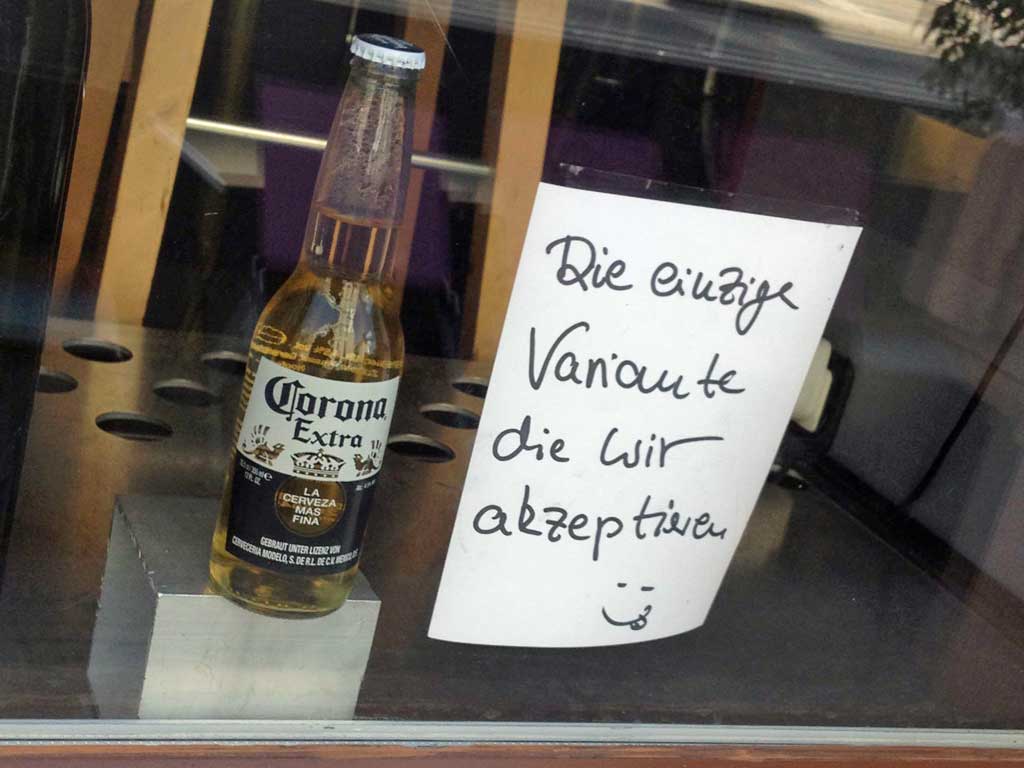 Corona
Extra
LA
CERVEZA
MAS
FINA
GEBRAUT UNTER LIZENZ VON
CERVECERIA MODELO, S. DE R.L. DE C.V. MEXICO
Die einzige
Variante
die wir
akzeptieren